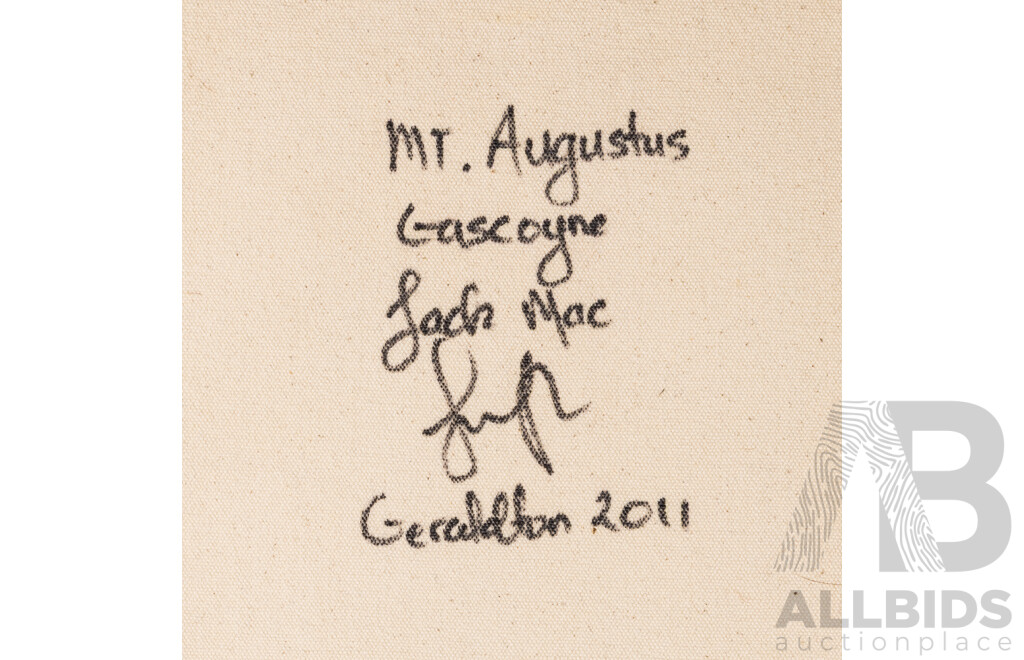 MT. Augustus
Gascoyne
Jack Mac
Geraldton 2011
AB
ALLBIDS
auctionplace